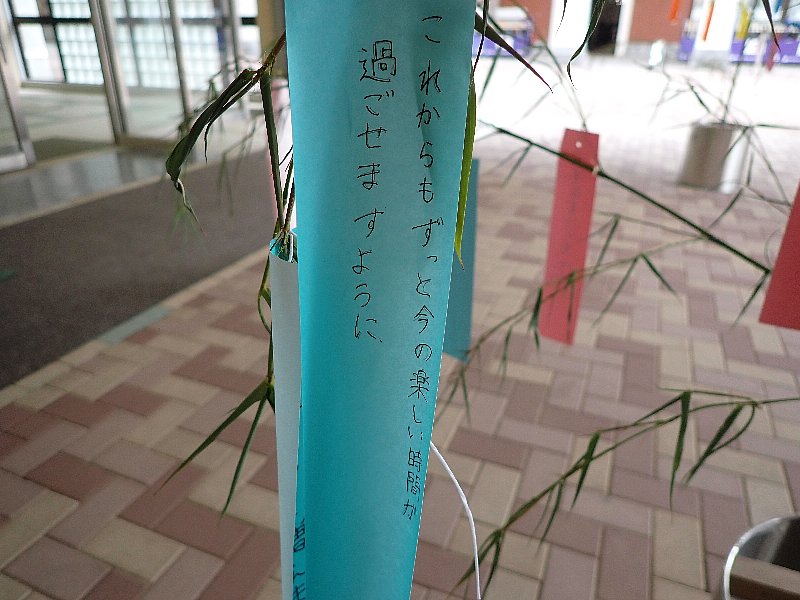 これからもずっと今の楽しい時間が
過ごせますように、